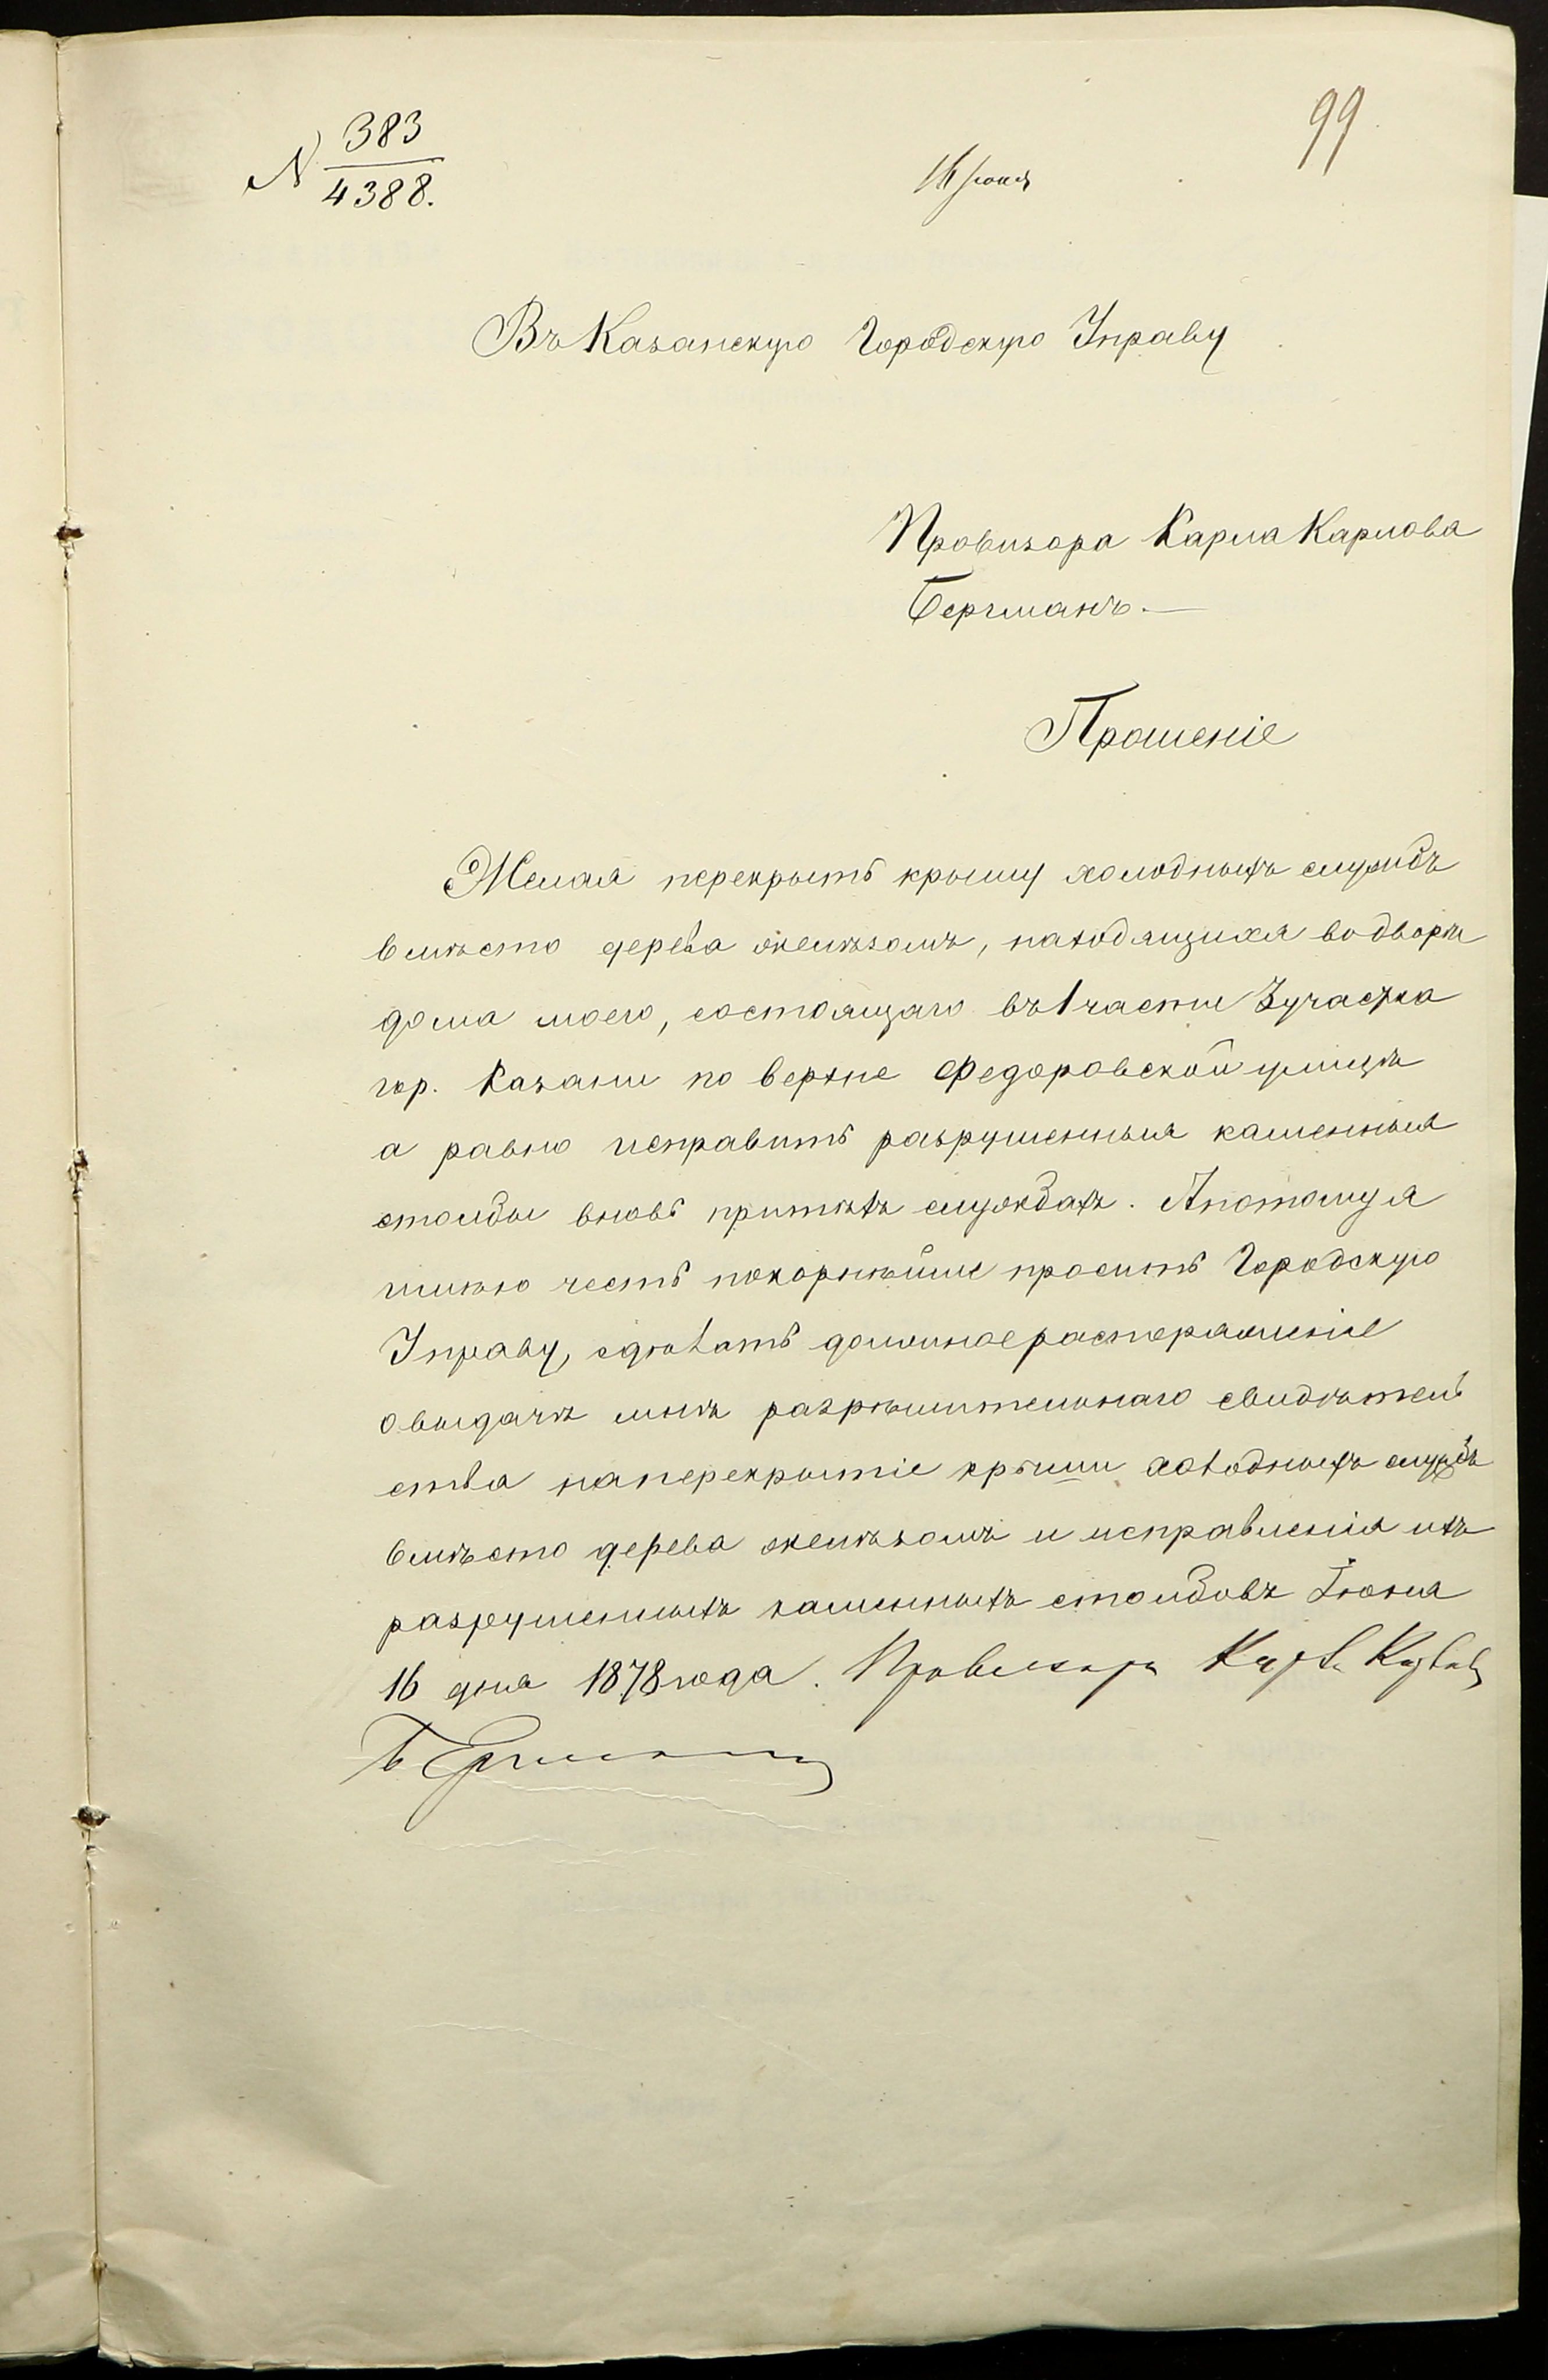 99
N 383
4388.
16 Іюня
Въ Казанскую Городскую Управу
Провизора Карла Карлова
Бергманъ. —
Прошеніе
Желая перекрыть крышу холодныхъ службъ
вмѣсто дерева желѣзомъ, находящихся во дворѣ
дома моего, состоящаго въ 1 части 3 участка
гор. Казани по верхне Федоровской улицѣ
а равно исправить разрушенныя каменныя
столбы вновь при тѣхъ службахъ. А потому я
имѣю честь покорнѣйше просить Городскую
Управу, сдѣлать должное распоряженіе
о выдачѣ мнѣ разрѣшительнаго свидѣтель
ства на перекрытіе крыши холодныхъ службъ
вмѣсто дерева желѣзомъ и исправленія ихъ
разрушенныхъ каменныхъ столбовъ Іюня
16 дня 1878 года. Провизоръ Карлъ Карловъ
Бергманъ